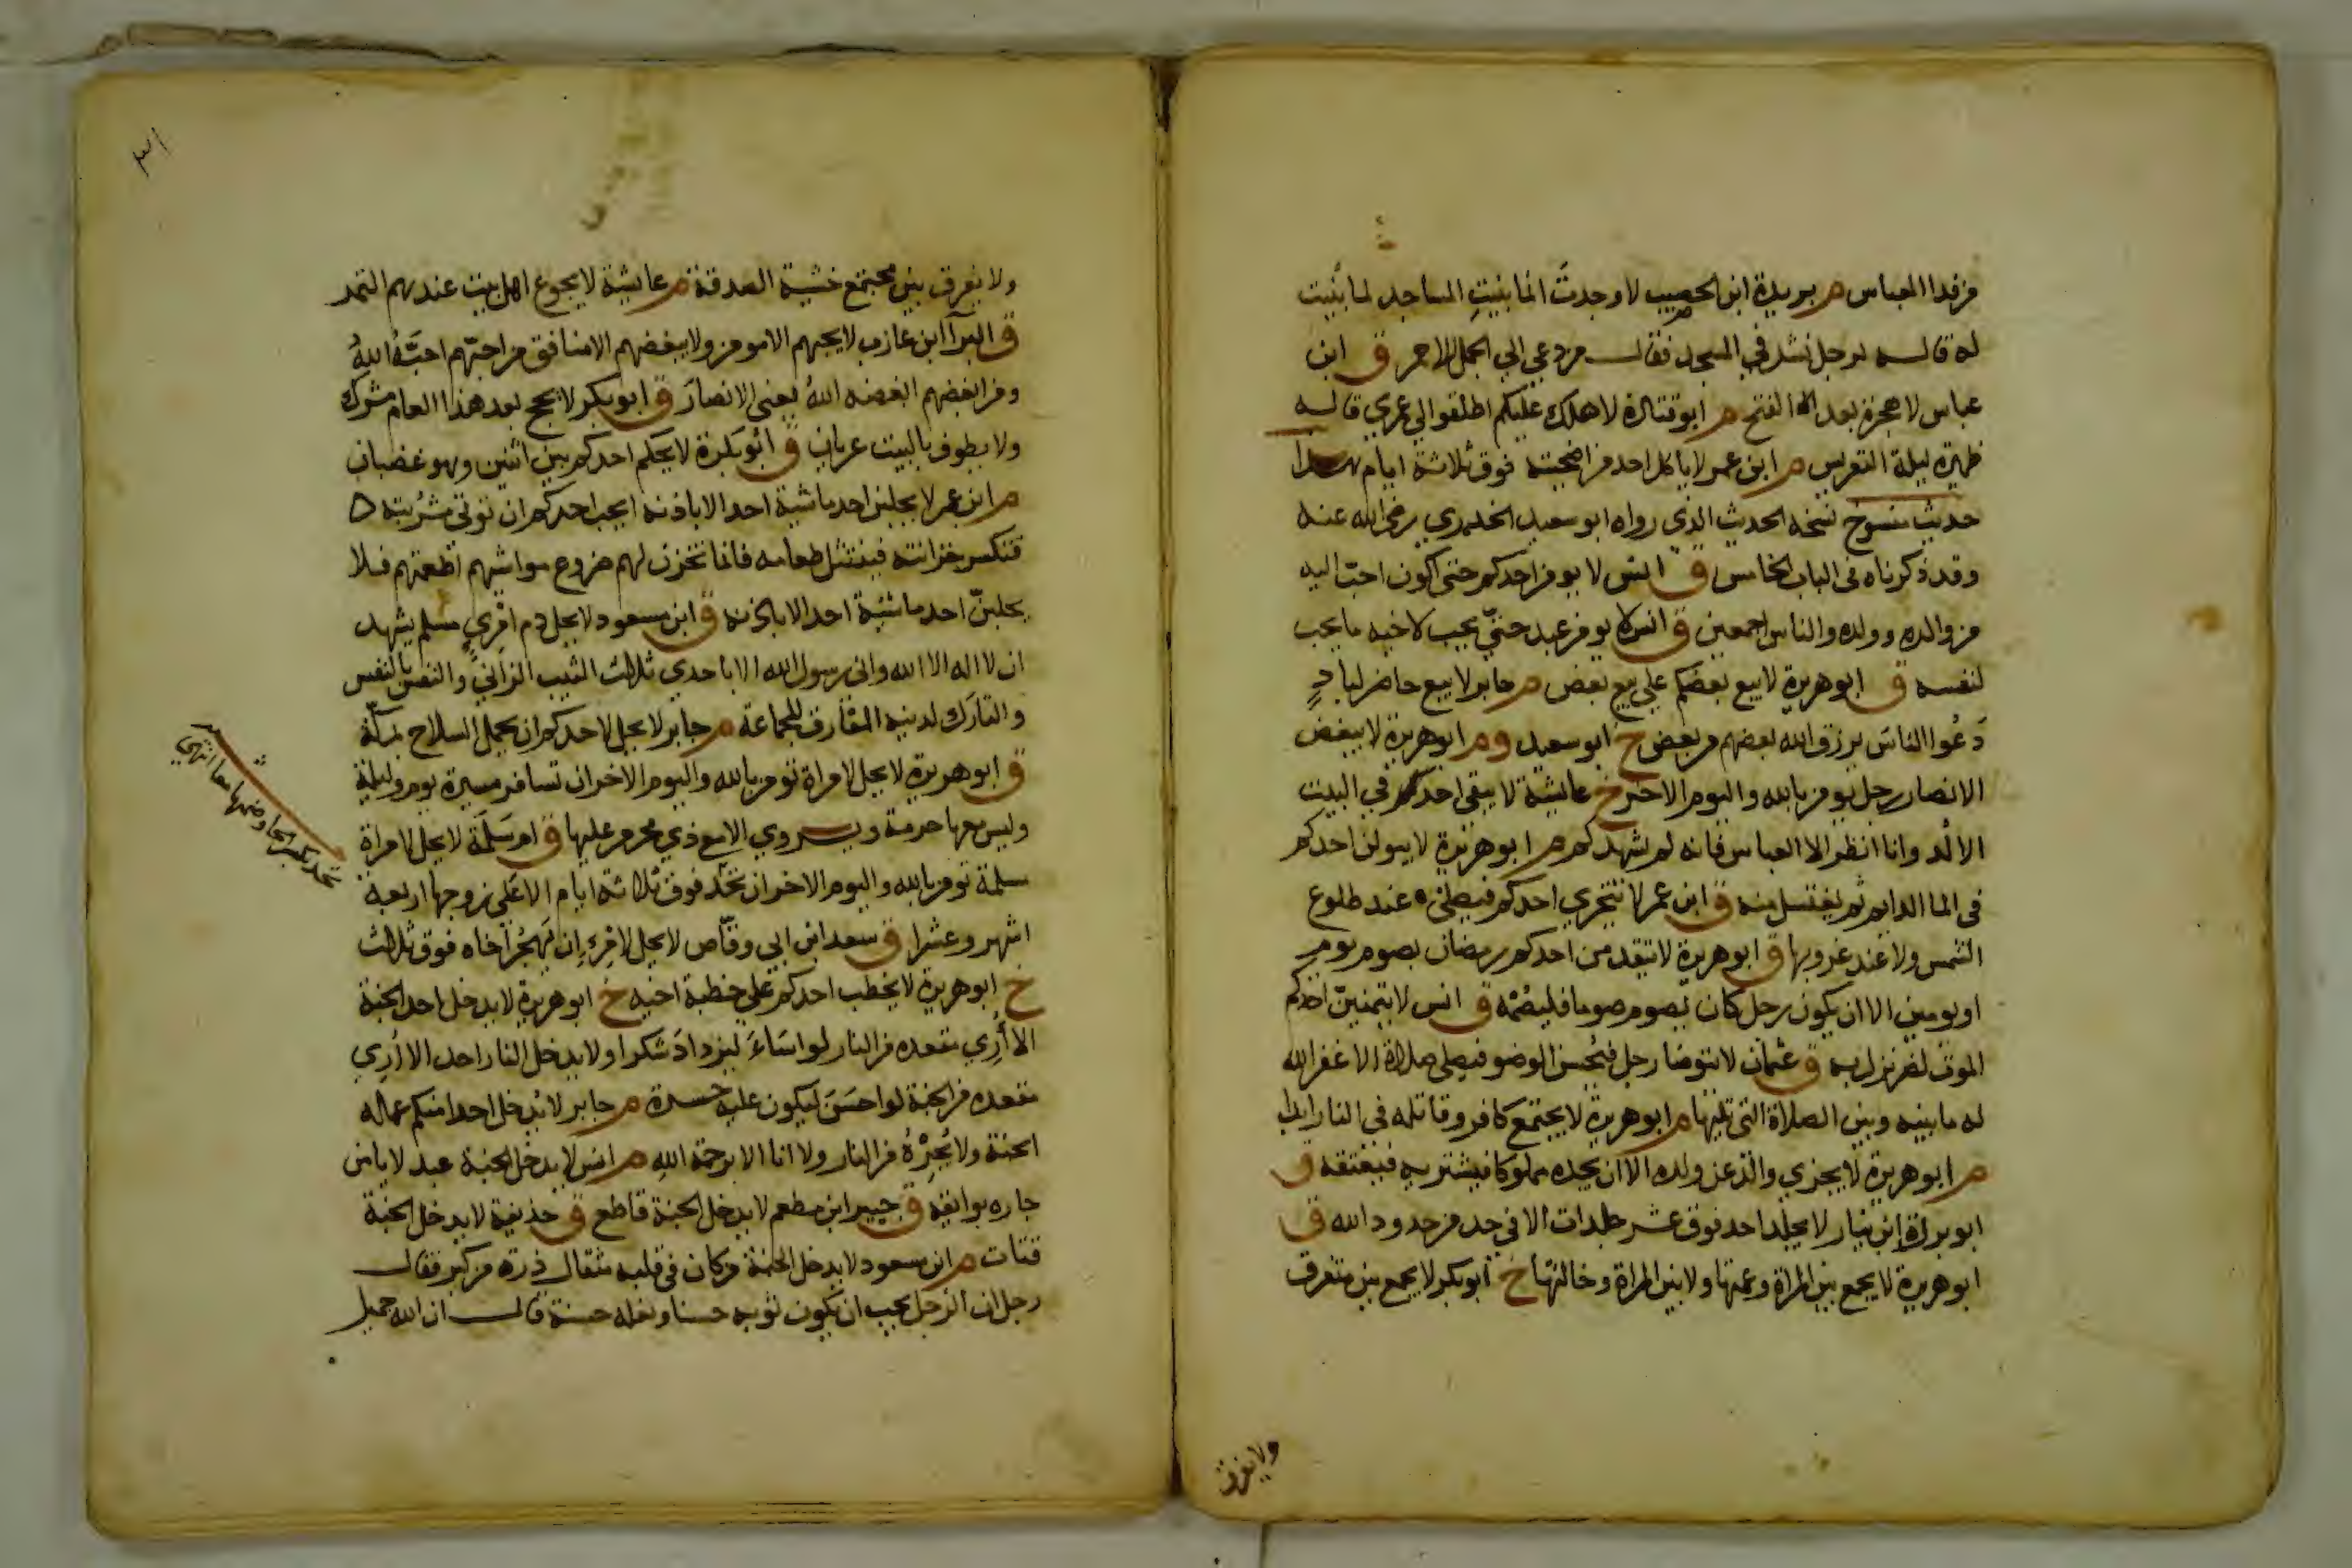 من فدا العباس م بريدة ابن الحصيب لا وجدت انما بنيت المساجد لما بنيت
له قاله لرجل نشد في المسجد فقال من دعي الي الجمل الاحمر ق ابن
عباس لا هجرة بعد الفتح م ابو قتادة لا هلك عليكم اطلقوا لي غمري قاله
ظهيرة ليلة التعريس م ابن عمر لا ياكل احد من اضحيته فوق ثلاثة ايام هذا
حديث منسوخ نسخه الحديث الذي رواه ابو سعيد الخدري رضي الله عنه
وقد ذكرناه في الباب الخامس ق انس لا يومن احدكم حتي اكون احب اليه
من والده وولده والناس اجمعين ق انس لا يومن عبد حتي يحب لاخيه ما يحب
لنفسه ق ابو هريرة لا يبيع بعضكم علي بيع بعض م جابر لا يبيع حاضر لباد
دعوا الناس يرزق الله بعضهم من بعض خ ابو سعيد وم ابو هريرة لا يبغض
الانصار رجل يومن بالله واليوم الاخر خ عايشة لا يبقي احد منكم في البيت
الا لد وانا انظر الا العباس فانه لم يشهدكم م ابو هريرة لا يبولن احدكم
في الما الدايم ثم يغتسل منه ق ابن عمر لا يتحري احدكم فيصلي عند طلوع
الشمس ولا عند غروبها ق ابو هريرة لا يتقدمن احدكم رمضان بصوم يوم
او يومين الا ان يكون رجل كان يصوم صوما فليصمه ق انس لا يتمنين احدكم
الموت لضر نزل به ق عثمان لا يتوضا رجل فيحسن الوضو فيصلي صلاة الا غفر الله
له ما بينه وبين الصلاة التي تليها م ابو هريرة لا يجتمع كافر وقاتله في النار ابدا
م ابو هريرة لا يجزي والد عن ولده الا ان يجده مملوكا فيشتريه فيعتقه ق
ابو بردة ابن نيار لا يجلد احد فوق عشر جلدات الا في حد من حدود الله ق
ابو هريرة لا يجمع بين المراة وعمتها ولا بين المراة وخالتها خ ابو بكر لا يجمع بين متفرق
ولا يفرق
٣١
ولا يفرق بين مجتمع خشية الصدقة م عايشة لا يجوع اهل بيت عندهم التمر
ق البرآ ابن عازب لا يحبهم الا مومن ولا يبغضهم الا منافق من احبهم احبه الله
ومن ابغضهم ابغضه الله يعني الانصار ق ابو بكر لا يحج بعد هذا العام مشرك
ولا يطوف بالبيت عريان ق ابو بكرة لا يحكم احدكم بين اثنين وهو غضبان
م ابن عمر لا يحلبن احد ماشية احد الا باذنه ايحب احدكم ان توتي مشربته
فتكسر خزانته فينتثل طعامه فانما تخزن لهم ضروع مواشيهم اطعمتهم فلا
يحلبن احد ماشية احد الا باذنه ق ابن مسعود لا يحل دم امري مسلم يشهد
ان لا اله الا الله واني رسول الله الا باحدي ثلاث الثيب الزاني والنفس بالنفس
والتارك لدينه المفارق للجماعة م جابر لا يحل لاحدكم ان يحمل السلاح بمكة
ق ابو هريرة لا يحل لامراة تومن بالله واليوم الاخر ان تسافر مسيرة يوم وليلة
وليس معها حرمة ويروي الا مع ذي محرم عليها ق ام سلمة لا يحل لامراة
مسلمة تومن بالله واليوم الاخر ان تحد فوق ثلاثة ايام الا علي زوجها اربعة
اشهر وعشرا ق سعد ابن ابي وقاص لا يحل لامرء ان يهجر اخاه فوق ثلاث
خ ابو هريرة لا يخطب احدكم علي خطبة اخيه خ ابو هريرة لا يدخل احد الجنة
الا أري مقعده من النار لو اساء ليزداد شكرا ولا يدخل النار احد الا أري
مقعده من الجنة لو احسن ليكون عليه حسرة م جابر لا يدخل احدا منكم عمله
الجنة ولا يجيره من النار ولا انا الا برحمة الله م انس لا يدخل الجنة عبد لا يامن
جاره بوايقه ق جبير ابن مطعم لا يدخل الجنة قاطع ق حذيفة لا يدخل الجنة
قتات م ابن مسعود لا يدخل الجنة من كان في قلبه مثقال ذرة من كبر فقال
رجل ان الرجل يحب ان يكون ثوبه حسنا ونعله حسنة قال ان الله جميل
تحد بكسر الحا وضمها معا انتهي